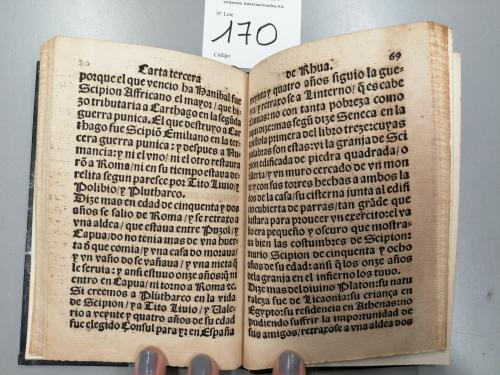 subastas internacionales s.a.
Nº Lote
170
Código
Carta tercera
porque el que vencio ha Hanibal fue
Scipion Affricano el mayor / que hi-
zo tributaria a Cartago en la segūda
guerra punica. El que destruyo a Car
thago fue Scipiō Emiliano en la ter-
cera guerra punica: y despues a Nu
mancia: y ni el vno / ni el otro restaura
rō a Roma / ni en su tiempo estaua de-
relita segun paresce por Tito Liuio / y
Polibio / y Plutharco.
Dize mas en edad de cinquenta y dos
años se salio de Roma / y se retraxo a
vna aldea / que estaua entre Puzol / y
Capua / do no tenia mas de vna huer
ta đ que comia / y vna casa do moraua /
y vn vaño do se vañaua / y vna nieta q̄
le seruia: y ansi estuuo onze años sin
entro en Capua / ni torno a Roma
Si creemos a Plūtharco en la vida
de Scipion / y a Tito Liuio / y Vale-
rio a veynte y quatro años de su edad
fue elegido Consul para yr en España
de Rhua.
69
veynta y quatro años siguio la gue-
rra y retraxose a Linterno / q̄ es cabe
Cumas: no con tanta pobreza como
aqui dize: mas segū dize Seneca en la
epistola primera del libro treze: cuyas
palabras son estas: vi la granja de Sci
pion edificada de piedra quadrada / o
silleria / y vn muro cercado de vn mon
te y con sus torres hechas a ambos la
dos de la casa / su cisterna junta al edifi
cio cubierta de parras / tan grāde que
bastara para prouer vn exercito: el va
ño era pequeño y oscuro que mostra-
ua bien las costumbres de Scipion:
murio Scipion de cinquenta y ocho
años de su edad: ansi q̄ los onze años
de la granja en el infierno los tuuo.
Dize mas del diuino Platon: su na-
turaleza fue de Licaonia: su criança en
Egypto: su residencia en Athenas: no
pudiendo suffrir la importunidad de
sus amigos / retraxose a vna aldea dos